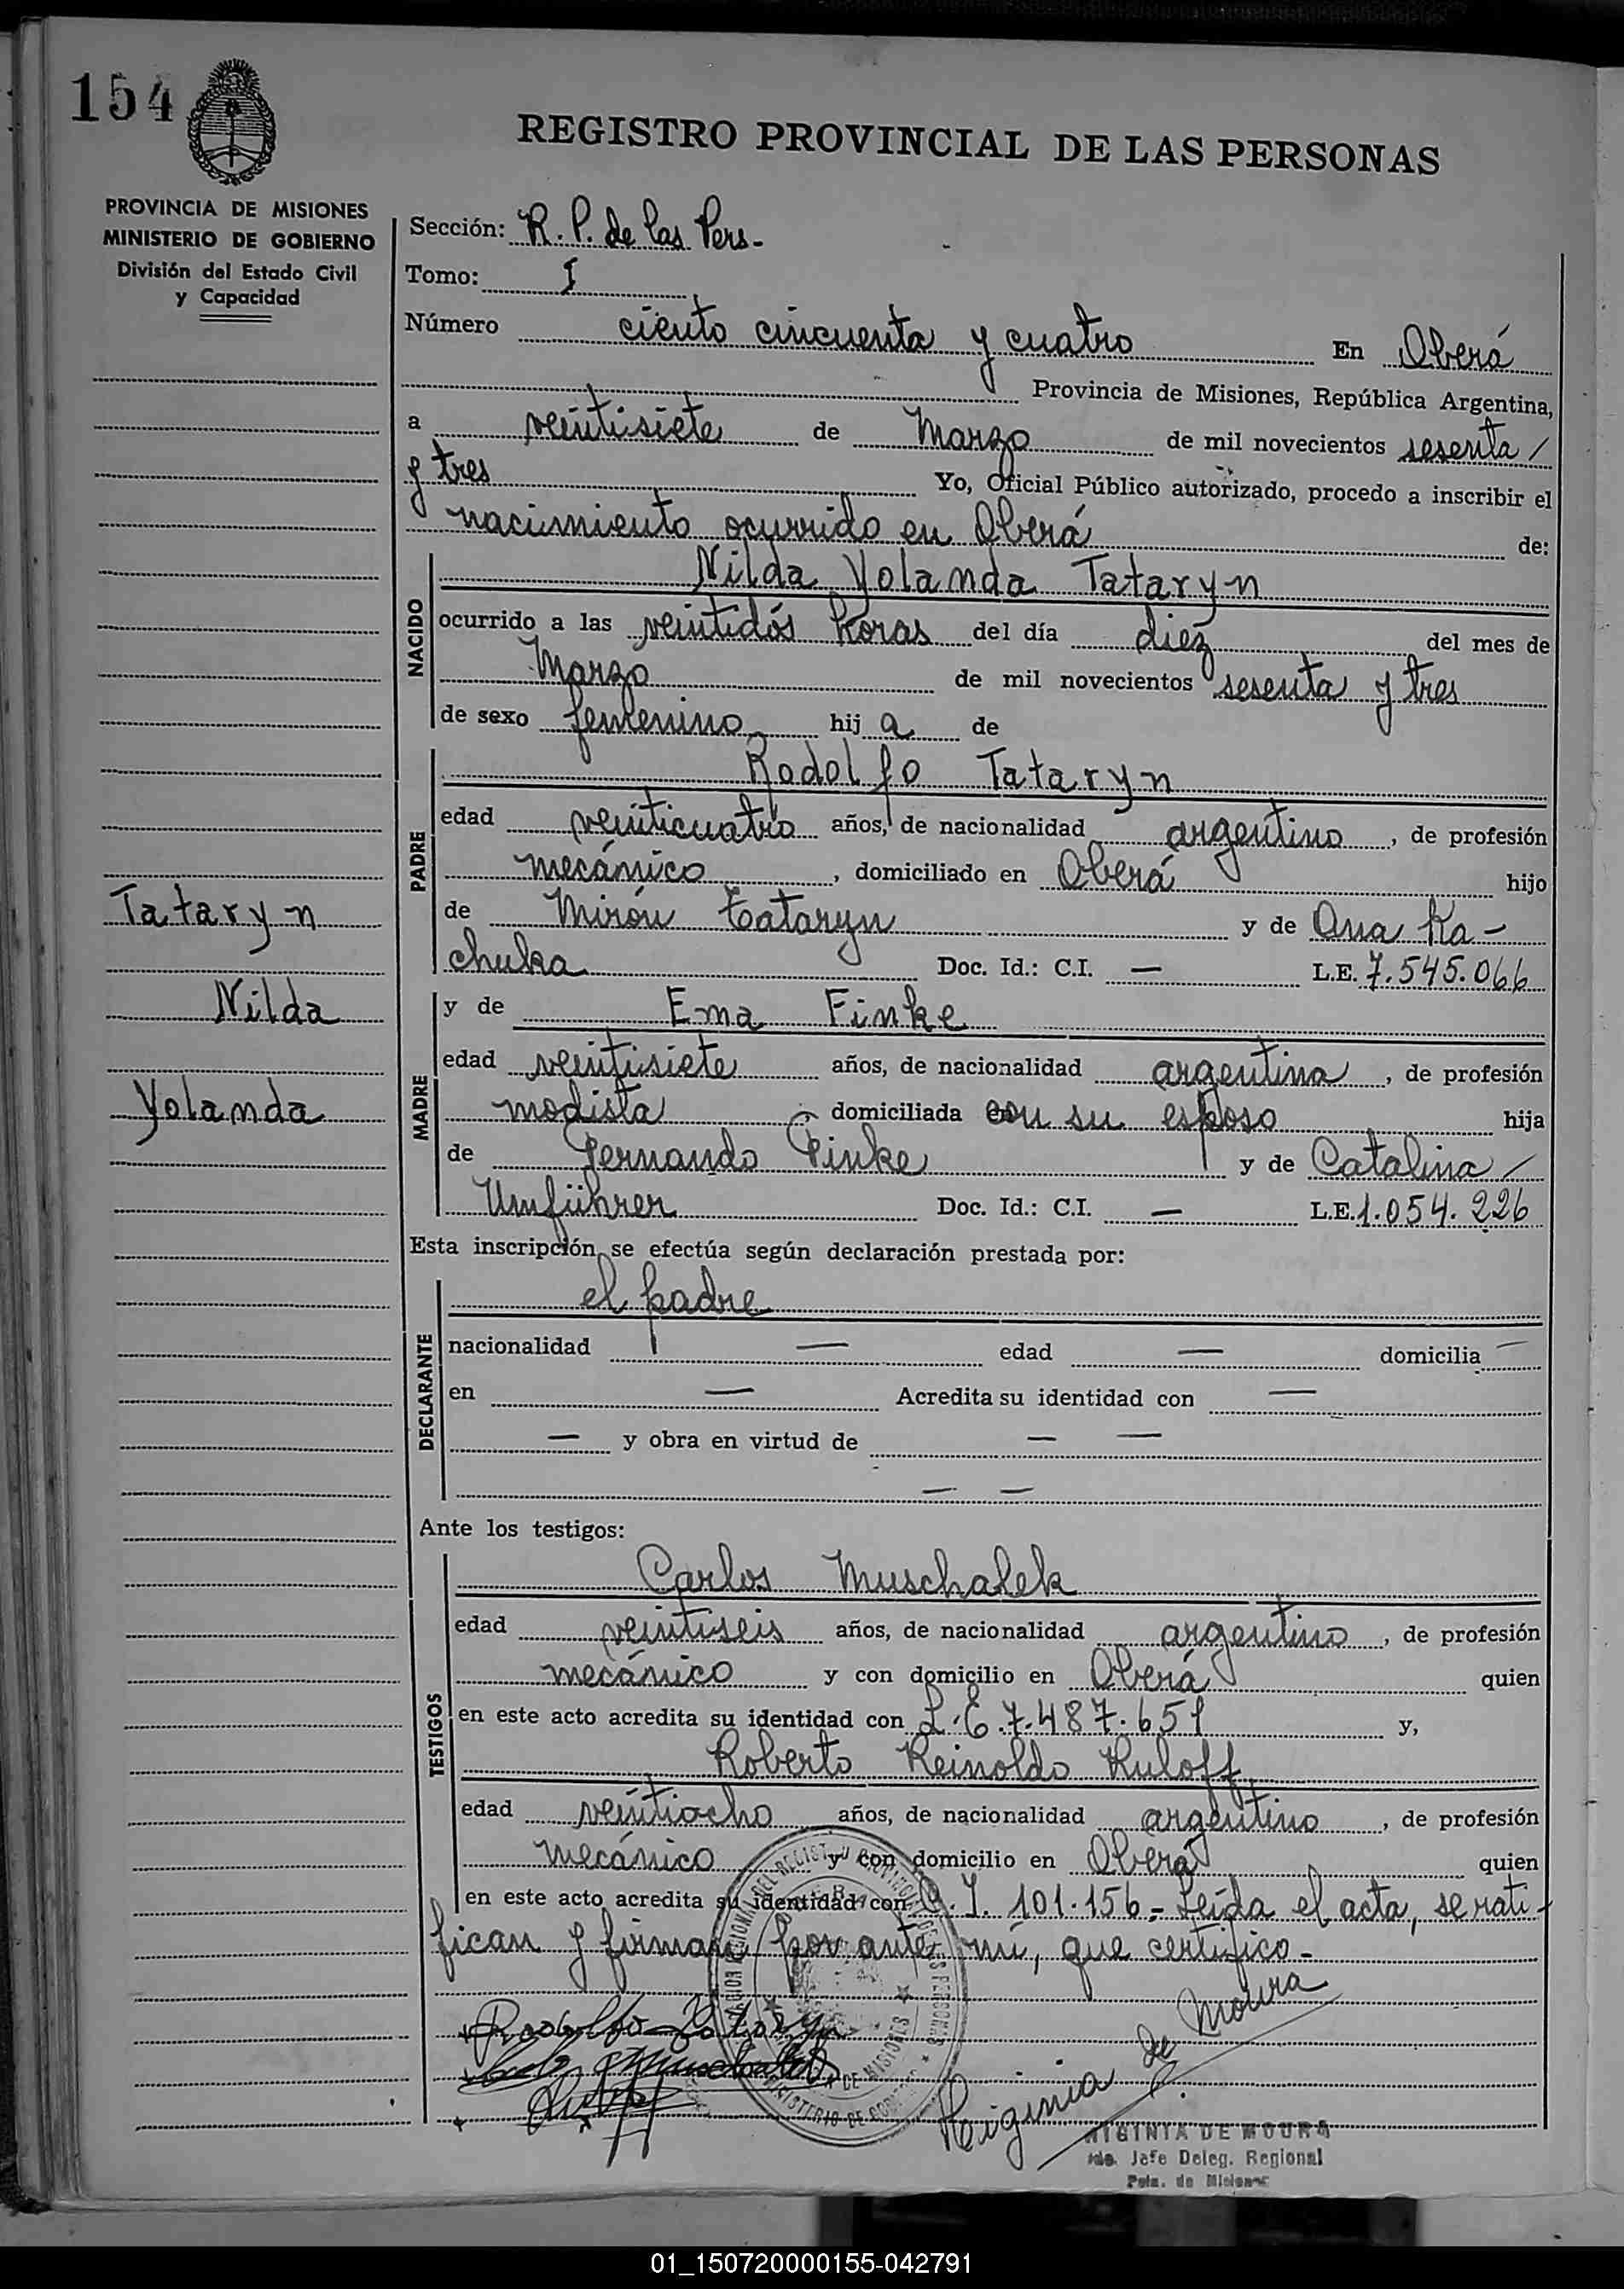 154
REGISTRO PROVINCIAL DE LAS PERSONAS
PROVINCIA DE MISIONES
MINISTERIO DE GOBIERNO
División del Estado Civil
y Capacidad
Sección: R. P. de las Pers-
Tomo: I
Número ciento cincuenta y cuatro En Oberá
Provincia de Misiones, República Argentina,
a veintisiete de Marzo de mil novecientos sesenta /
y tres Yo, Oficial Público autorizado, procedo a inscribir el
nacimiento ocurrido en Oberá de:
NACIDO
Nilda Yolanda Tataryn
ocurrido a las veintidós horas del día diez del mes de
Marzo de mil novecientos sesenta y tres
de sexo femenino hij a de
PADRE
Rodolfo Tataryn
edad veinticuatro años, de nacionalidad argentino, de profesión
mecánico, domiciliado en Oberá hijo
de Mirón Tataryn y de Ana Ka-
chuka Doc. Id.: C.I. — L.E. 7.545.066
Tataryn
Nilda
Yolanda
MADRE
y de Ema Finke
edad veintisiete años, de nacionalidad argentina, de profesión
modista, domiciliada con su esposo hija
de Fernando Finke y de Catalina /
Umführer Doc. Id.: C.I. — L.E. 1.054.226
Esta inscripción se efectúa según declaración prestada por:
DECLARANTE
el padre
nacionalidad — edad — domicilia —
en — Acredita su identidad con —
— y obra en virtud de — —
— —
Ante los testigos:
TESTIGOS
Carlos Muschalek
edad veintiseis años, de nacionalidad argentino, de profesión
mecánico y con domicilio en Oberá quien
en este acto acredita su identidad con L.E. 7.487.651 y,
Roberto Reinoldo Kuloff
edad veintiocho años, de nacionalidad argentino, de profesión
mecánico y con domicilio en Oberá quien
en este acto acredita su identidad con C.I. 101.156.- Leída el acta, se rati-
fican y firman por ante mí, que certifico-
Rodolfo Tataryn
Higinia de Moura
HIGINIA DE MOURA
Jefe Deleg. Regional
Pcia. de Misiones
01_150720000155-042791